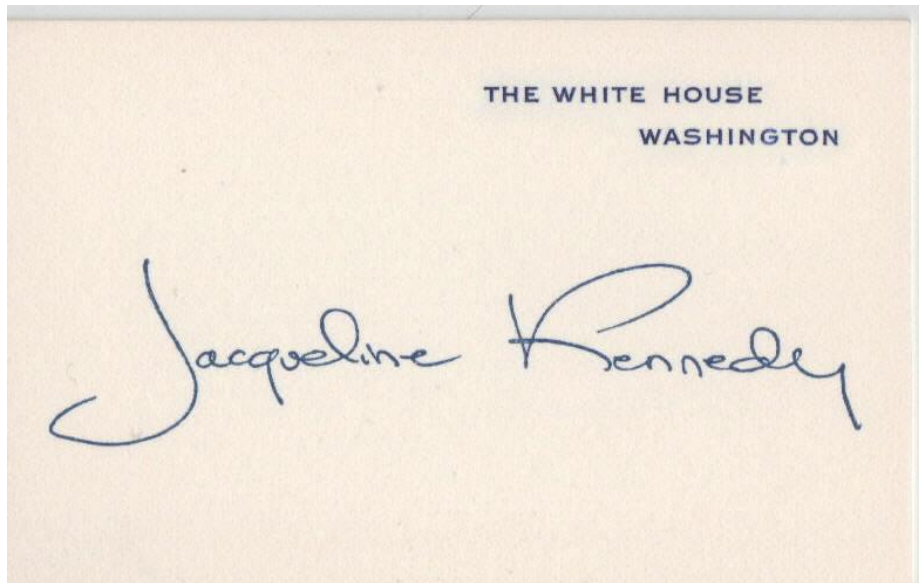 THE WHITE HOUSE
WASHINGTON
Jacqueline Kennedy